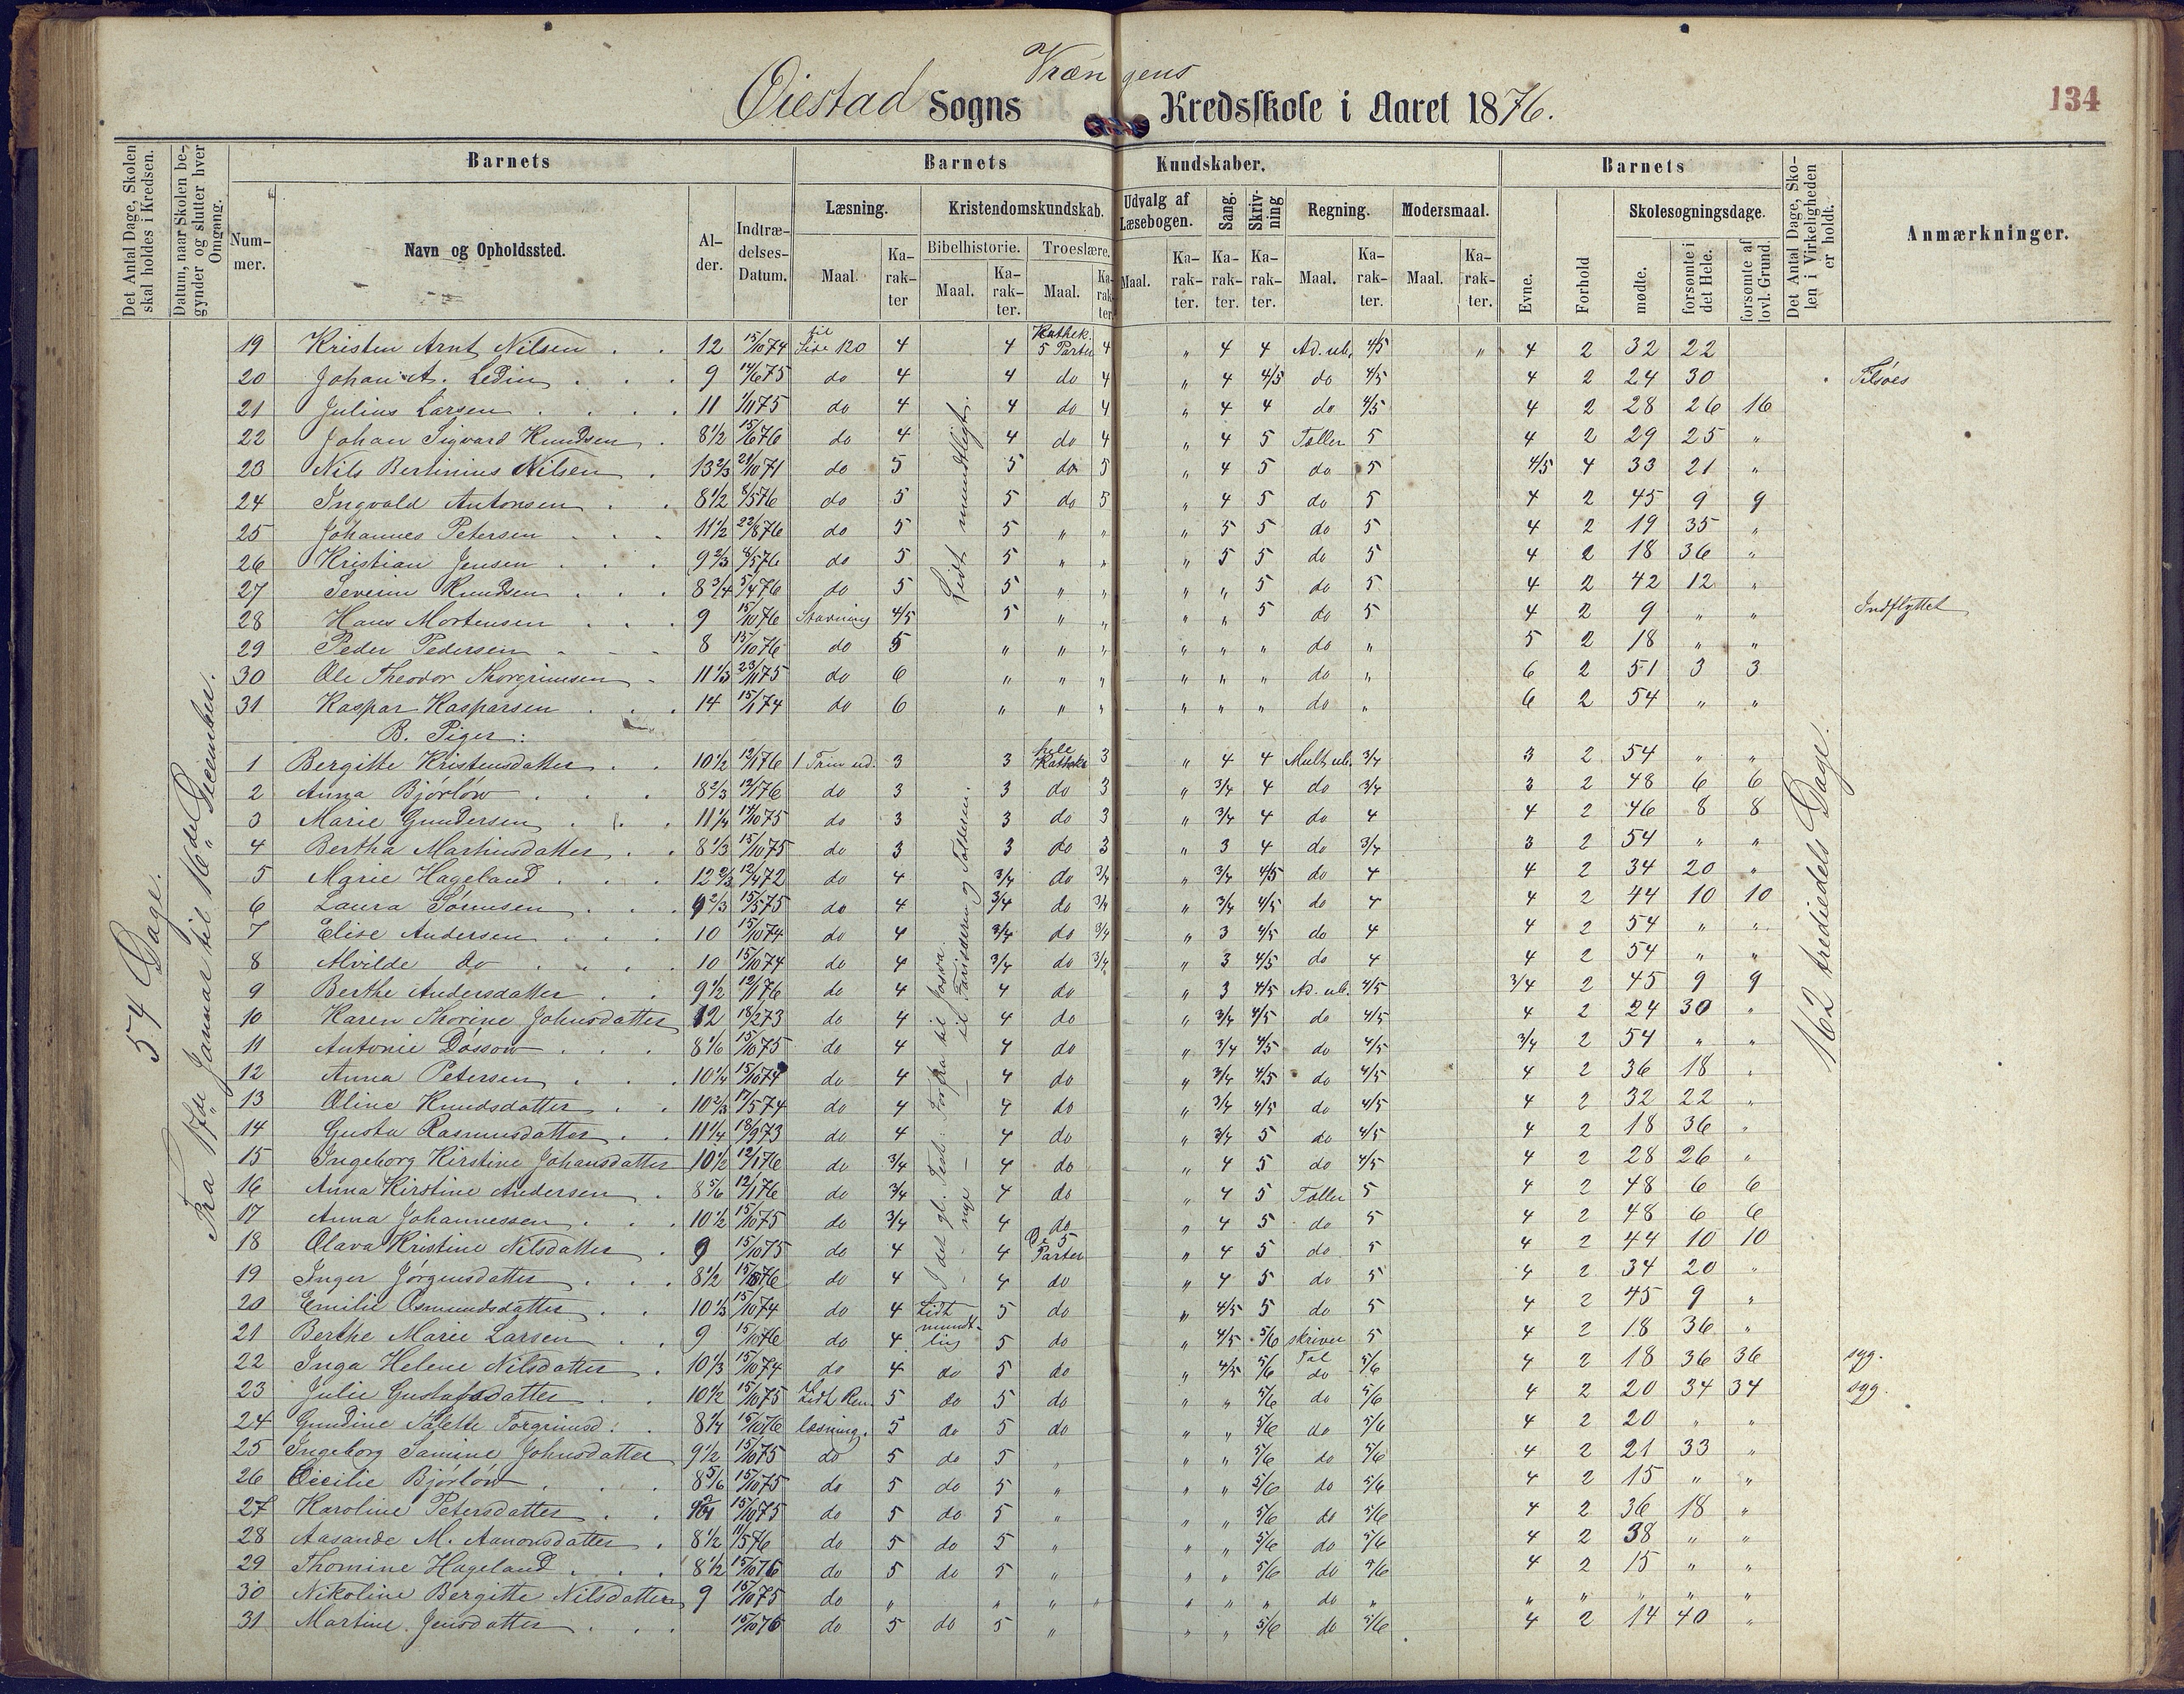 Vrængens
Øiestad Sogns Kredsskole i Aaret 1876.
134
Det Antal Dage, Skolen skal holdes i Kredsen.
Datum, naar Skolen begynder og slutter hver Omgang.
Barnets
Barnets Kundskaber.
Barnets
Det Antal Dage, Skolen i Virkeligheden er holdt.
Anmærkninger.
Nummer.
Navn og Opholdssted.
Alder.
Indtrædelses-Datum.
Læsning.
Kristendomskundskab.
Udvalg af Læsebogen.
Sang.
Skrivning
Regning.
Modersmaal.
Evne.
Forhold
Skolesøgningsdage.
Bibelhistorie.
Troeslære.
Maal.
Karakter
Maal.
Karakter.
Maal.
Karakter
Maal.
Karakter.
Karakter.
Karakter.
Maal.
Karakter.
Maal.
Karakter.
mødte.
forsømte i det Hele.
forsømte af lovl. Grund.
54 Dage.
Fra 17de Januar til 16de Decemher.
162 trediedels Dage.
Lidt mundtligt.
19 Kristen Arnt Nilsen 12 15/10 74 til Side 120 4 4 Kathek. 5 Parter 4 " 4 4 Ad. ub. 4/5 " 4 2 32 22
20 Johan A. Ledin 9 14/6 75 do 4 4 do 4 " 4 4/5 do 4/5 4 2 24 30 Tilsøes
21 Julius Larsen 11 1/11 75 do 4 4 do 4 " 4 4 do 4/5 4 2 28 26 16
22 Johan Sigvard Knudsen 8 1/2 15/6 76 do 4 4 do 4 " 4 5 Tæller 5 4 2 29 25 "
23 Nils Bertinius Nilsen 13 2/3 21/10 71 do 5 5 do 5 " 4 5 do 5 4/5 4 33 21 "
24 Ingvald Antonsen 8 1/2 8/5 76 do 5 5 do 5 " 4 5 do 5 4 2 45 9 9
25 Johannes Petersen 11 1/2 22/8 76 do 5 5 " " " 5 5 do 5 4 2 19 35 "
26 Kristian Jensen 9 2/3 8/5 76 do 5 5 " " " 5 5 do 5 4 2 18 36 "
27 Severin Knudsen 8 3/4 5/4 76 do 5 5 " " " " 5 do 5 4 2 42 12 "
28 Hans Mortensen 9 15/10 76 Stavning 4/5 5 " " " " 5 do 5 4 2 9 " " Indflyttet
29 Peder Pedersen 8 15/10 76 do 5 " " " " " " do " 5 2 18 " "
30 Ole Theodor Thorgrimsen 11 1/3 23/11 75 do 6 " " " " " " do " 6 2 51 3 3
31 Kaspar Kasparsen 14 15/1 74 do 6 " " " " " " do " 6 2 54 " "
B. Piger:
1 Bergitte Kristensdatter 10 1/2 12/1 76 1 Trin ud. 3 3 hele Kathek 3 " 4 4 Mult ub. 3/4 3 2 54 " "
2 Anna Bjørløw 8 2/3 12/1 76 do 3 3 do 3 " 3/4 4 do 3/4 3 2 48 6 6
3 Marie Gundersen 11 1/4 14/10 75 do 3 3 do 3 " 3/4 4 do 4 4 2 46 8 8
4 Bertha Martinsdatter 8 1/3 15/10 75 do 3 3 do 3 " 3 4 do 3/4 3 2 54 " "
5 Marie Hageland 12 2/3 12/4 72 do 4 3/4 do 3/4 " 3/4 4/5 do 4 4 2 34 20 "
6 Laura Sørensen 9 2/3 15/5 75 do 4 3/4 do 3/4 " 3/4 4/5 do 4 4 2 44 10 10
7 Elise Andersen 10 15/10 74 do 4 3/4 do 3/4 " 3 4/5 do 4 4 2 54 " "
8 Alvilde do 10 15/10 74 do 4 3/4 do 3/4 " 3 4/5 do 4 4 2 54 " "
9 Berthe Andersdatter 9 1/2 12/1 76 do 4 4 do " 3 4/5 Ad. ub. 4/5 3/4 2 45 9 9
10 Karen Thorine Johnsdatter 12 18/2 73 do 4 4 do " 3/4 4/5 do 4/5 4 2 24 30 "
11 Antonie Dossow 8 1/6 15/10 75 do 4 4 do " 3/4 4/5 do 4/5 3/4 2 54 " "
12 Anna Petersen 10 1/4 15/10 74 do 4 4 do " 3/4 4/5 do 4/5 4 2 36 18 "
13 Oline Knudsdatter 10 2/3 17/5 74 do 4 4 do " 3/4 4/5 do 4/5 4 2 32 22 "
14 Gusta Rasmusdatter 11 1/4 18/9 73 do 4 4 do " 3/4 5 do 4/5 4 2 18 36 "
15 Ingeborg Kirstine Johansdatter 10 1/2 12/1 76 do 3/4 4 do " 4 5 do 4/5 4 2 28 26 "
16 Anna Kirstine Andersen 8 5/6 12/1 76 do 3/4 4 do " 4 5 Tæller 5 4 2 48 6 6
17 Anna Johannessen 10 1/2 15/10 75 do 3/4 4 do " 4 5 do 5 4 2 48 6 6
18 Olava Kristine Nilsdatter 9 15/10 75 do 4 4 De 5 Parter " 4 5 do 5 4 2 44 10 10
19 Inger Jørgensdatter 8 1/2 15/10 76 do 4 4 do " 4 5 do 5 4 2 34 20 "
20 Emilie Osmundsdatter 10 1/3 15/10 74 do 4 Lidt mundtlig 5 do " 4/5 5 do 5 4 2 45 9 "
21 Berthe Marie Larsen 9 15/10 76 do 4 5 do " 4/5 5/6 skriver Tal 5 4 2 18 36 "
22 Inga Helene Nilsdatter 10 1/3 15/10 74 do 4 do 5 do " 4/5 5/6 do 5/6 4 2 18 36 36 syg.
23 Julie Gustafsdatter 10 1/2 15/10 75 Lidt Ren- 5 do 5 do " " 5/6 do 5/6 4 2 20 34 34 syg.
24 Gundine Talette Torgrimsd: 8 1/4 15/10 76 læsning. 5 do 5 do " " 5/6 do 5/6 4 2 20 " "
25 Ingeborg Samine Johnsdatter 9 1/2 15/10 75 do 5 do 5 " " " 5/6 do 5/6 4 2 21 33 "
26 Cecilie Bjørløw 8 5/6 15/10 75 do 5 do 5 " " " 5/6 do 5/6 4 2 15 " "
27 Karoline Petersdatter 15/10 75 do 5 do 5 " " " 5/6 do 5/6 4 2 36 18 "
28 Aasande M. Aanonsdatter 8 1/2 11/5 76 do 5 do 5 " " " 5/6 do 5/6 4 2 38 " "
29 Thomine Hageland 8 1/2 15/10 76 do 5 do 5 " " " 5/6 do 5/6 4 2 15 " "
30 Nikoline Bergitte Nilsdatter 9 15/10 75 do " " " " " " " do " " " " " "
31 Martine Jensdatter 15/10 76 do 5 do 5 " " " 5/6 do 5/6 4 2 14 40 "